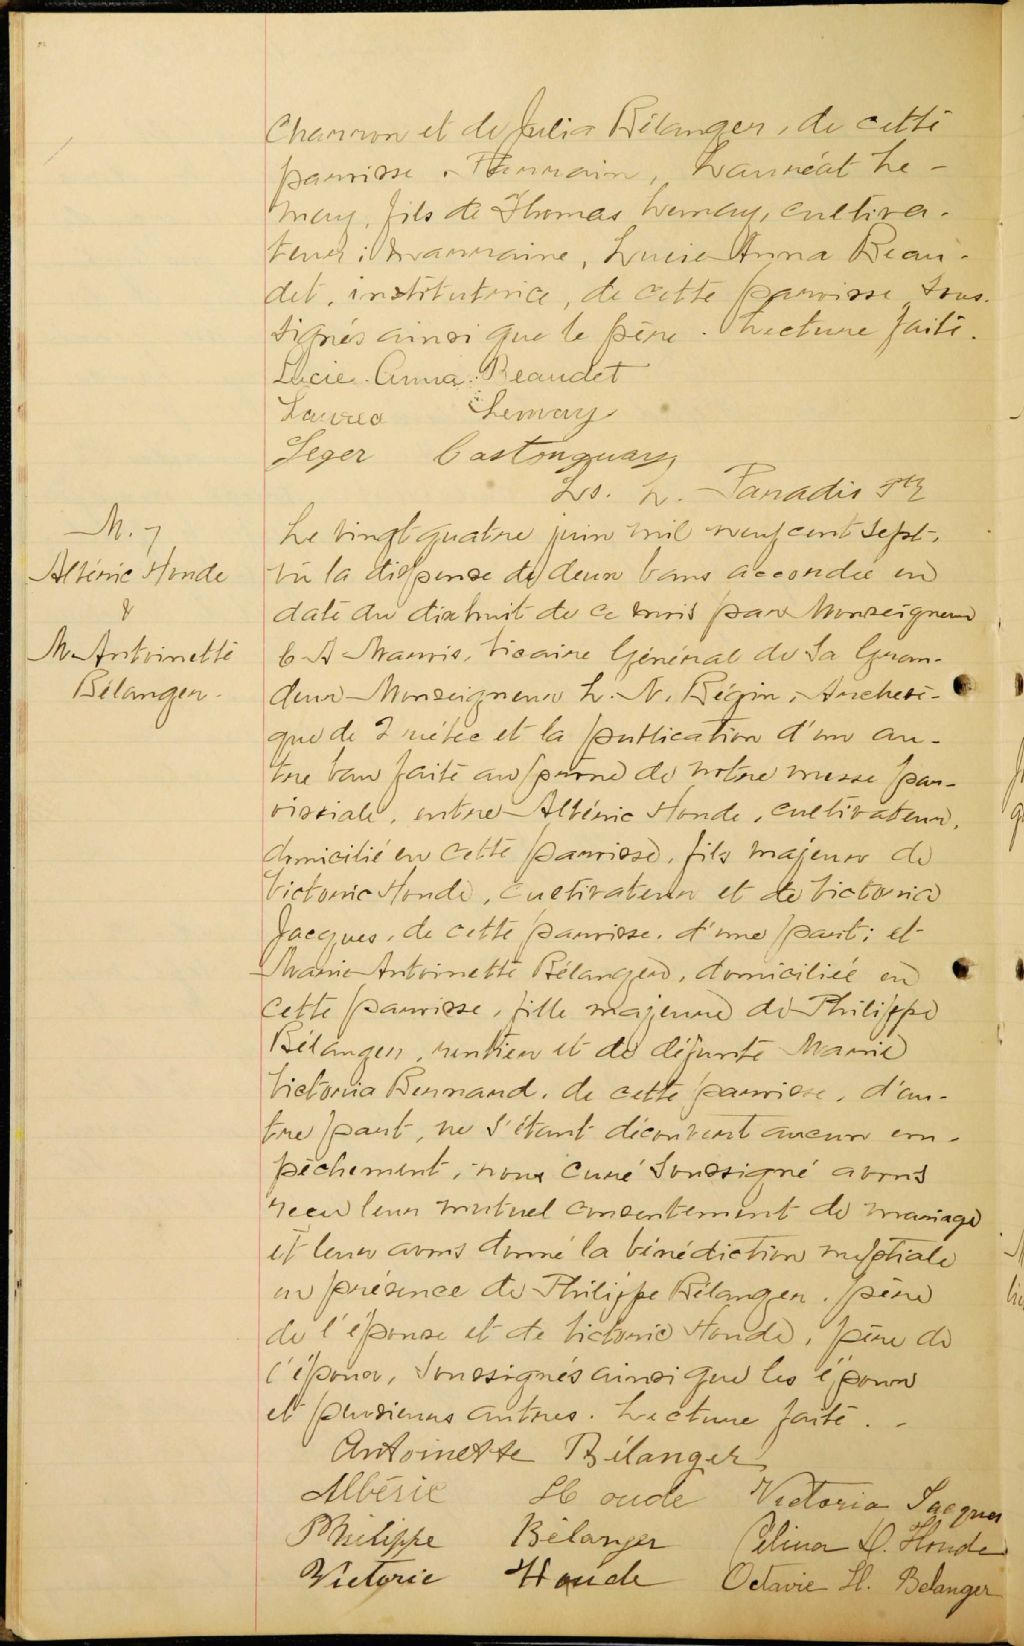 Charron et de Julia Bélanger, de cette
paroisse. Parrain, Lauréat Le-
may, fils de Thomas Lemay, cultiva-
teur; marraine, Lucie-Anna Beau-
det, institutrice, de cette paroisse sous-
signés ainsi que le père. Lecture faite.
Lucie-Anna Beaudet
Laurea Lemay
Leger Castonguay
Ls. L. Paradis Ptre
M. 7
Albéric Houde
&
M. Antoinette
Bélanger.
Le vingt quatre juin mil neuf cent sept,
vu la dispense de deux bans accordée en
date du dixhuit de ce mois par Monseigneur
C A Marois, Vicaire Général de Sa Gran-
deur Monseigneur L. N. Bégin, Archevê-
que de Québec et la publication d'un au-
tre ban faite au prône de notre messe pa-
roissiale, entre Albéric Houde, cultivateur,
domicilié en cette paroisse, fils majeur de
Victoric Houde, cultivateur et de Victoria
Jacques, de cette paroisse, d'une part; et
Marie-Antoinette Bélanger, domiciliée en
cette paroisse, fille majeure de Philippe
Bélanger, rentier et de défunte Marie
Victoria Bernard, de cette paroisse, d'au-
tre part, ne s'étant découvert aucun em-
pêchement, nous curé soussigné avons
reçu leur mutuel consentement de mariage
et leur avons donné la bénédiction nuptiale
en présence de Philippe Bélanger, père
de l'épouse et de Victoric Houde, père de
l'époux, soussignés ainsi que les époux
et plusieurs autres. Lecture faite.
Antoinette Bélanger
Albéric Houde Victoria Jacques
Philippe Bélanger Célina D. Houde
Victoric Houde Octavie H. Belanger